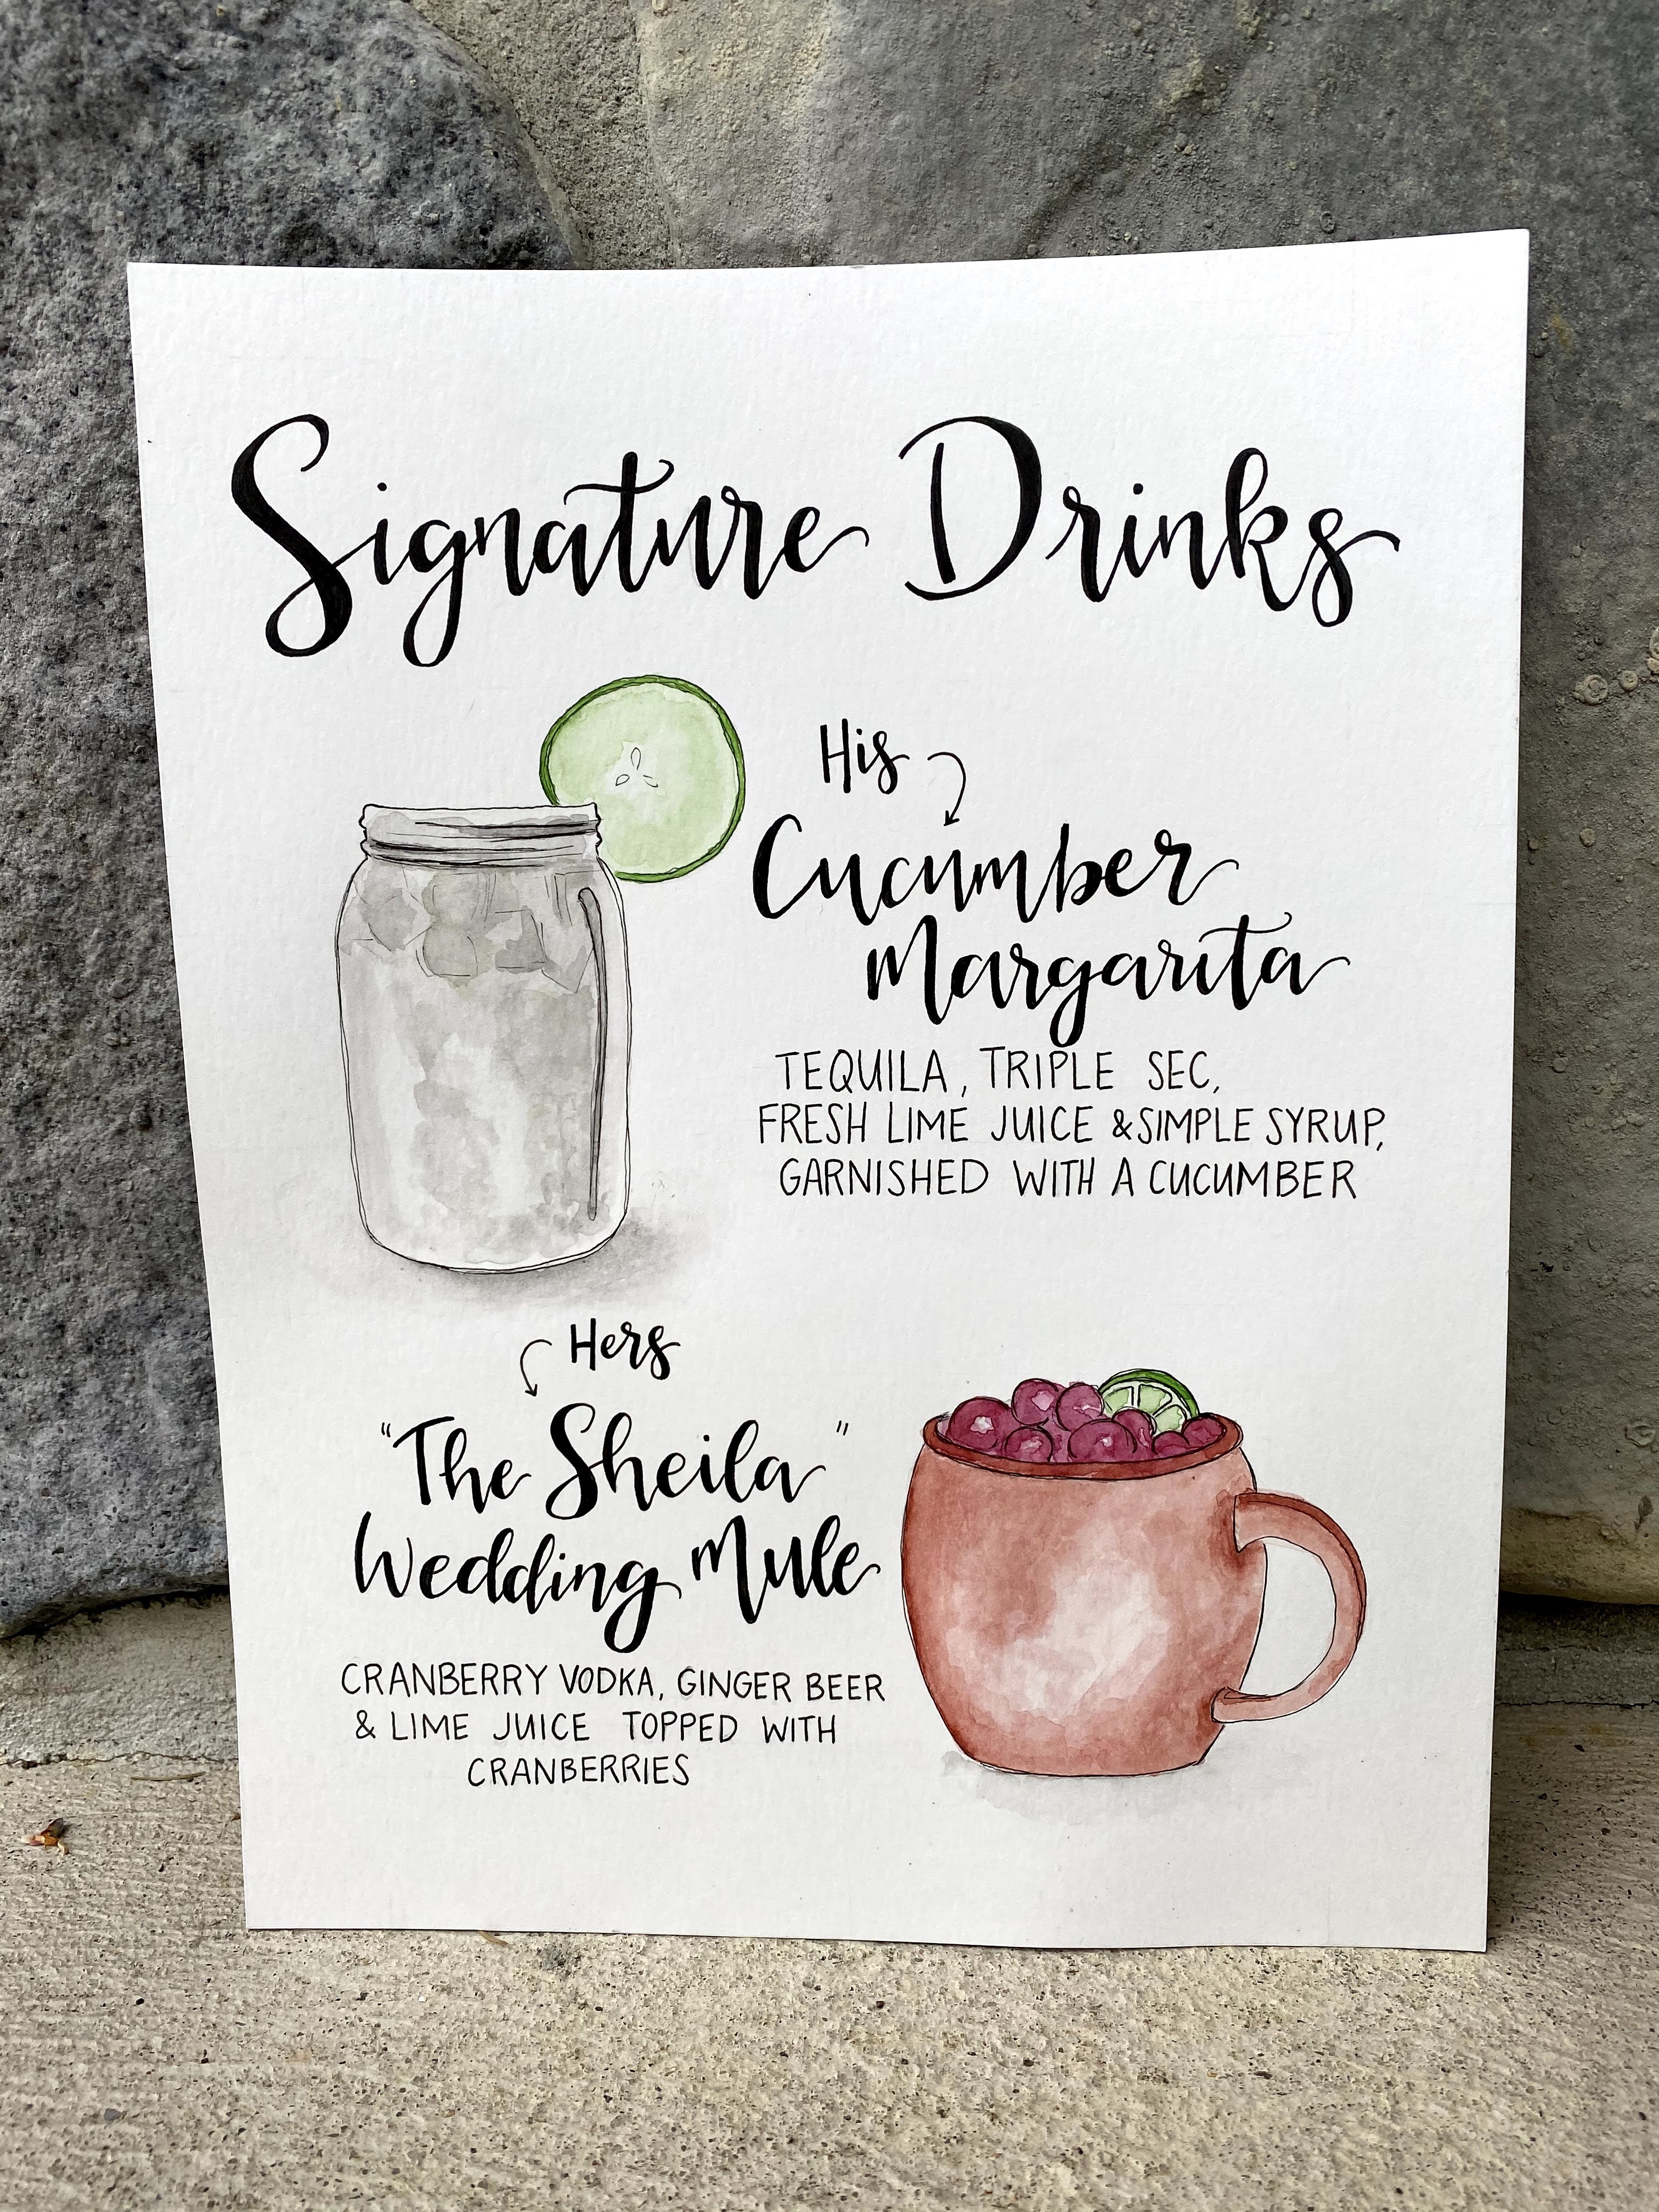 Signature Drinks
His
Cucumber
Margarita
TEQUILA, TRIPLE SEC,
FRESH LIME JUICE & SIMPLE SYRUP,
GARNISHED WITH A CUCUMBER
Hers
"The Sheila"
Wedding Mule
CRANBERRY VODKA, GINGER BEER
& LIME JUICE TOPPED WITH
CRANBERRIES